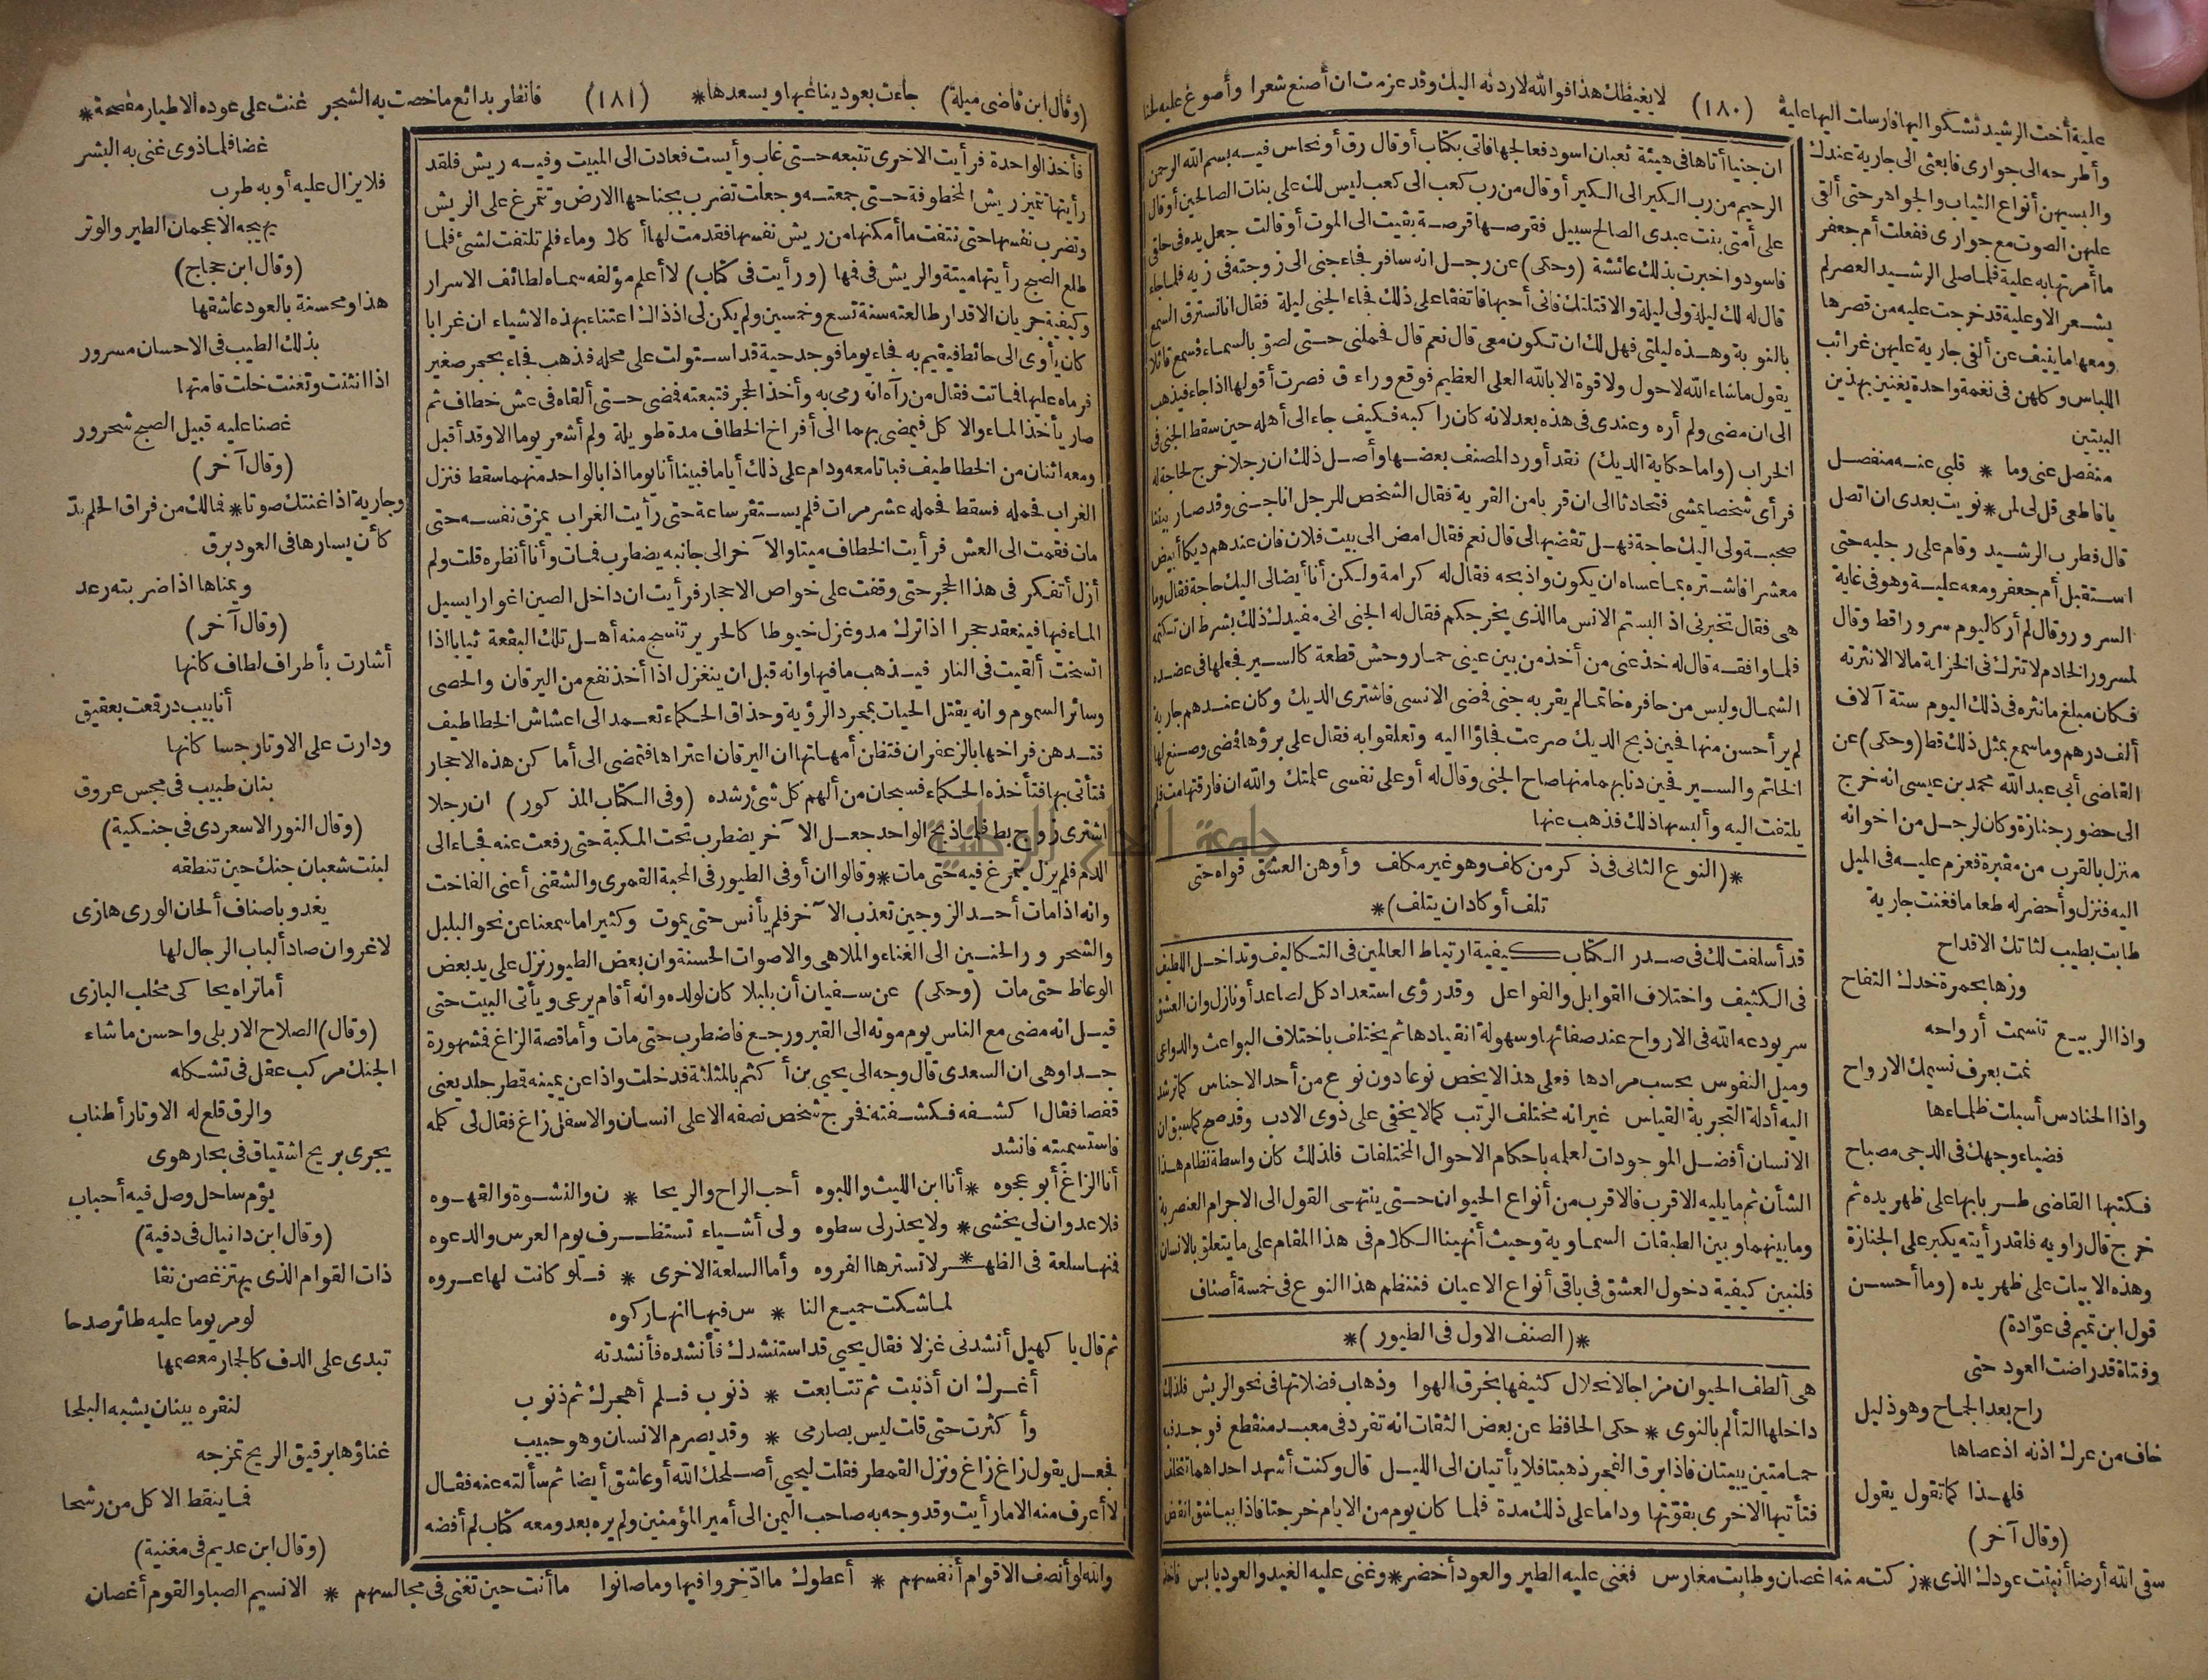 علية أخت الرشيد تشكو اليها فارسات اليها علية (١٨٠) لا يغيظك هذا فوالله لاردنه اليك وقد عزمت ان أصنع شعرا وأصوغ عليه لحنا
وأطرحه الى جوارى فابعثى الى جارية عندك
والبسيهن أنواع الثياب والجواهر حتى ألقى
عليهن الصوت مع جوارى ففعلت أم جعفر
ما أمرتها به علية فلما صلى الرشيد العصر لم
يشعر الا وعلية قد خرجت عليه من قصرها
ومعها ما ينيف عن ألفى جارية عليهن غرائب
اللباس وكلهن فى نغمة واحدة يغنين بهذين
البيتين
منفصل عنى وما * قلبى عنه منفصل
يا قاطعى قل لى لمن * نويت بعدى ان اتصل
قال فطرب الرشيد وقام على رجليه حتى
استقبل أم جعفر ومعه علية وهو فى غاية
السرور وقال لم أر كاليوم سرورا قط وقال
لمسرور الخادم لا تترك فى الخزانة مالا الا نثرته
فكان مبلغ ما نثره فى ذلك اليوم ستة آلاف
ألف درهم وما سمع بمثل ذلك قط (وحكى) عن
القاضى أبى عبد الله محمد بن عيسى انه خرج
الى حضور جنازة وكان لرجل من اخوانه
منزل بالقرب من مقبرة فعزم عليه فى الميل
اليه فنزل وأحضر له طعاما فغنت جارية
طابت بطيب لثاتك الاقداح
وزها بحمرة خدك التفاح
واذا الربيع تنسمت أرواحه
نمت بعرف نسيمك الارواح
واذا الحنادس أسبلت ظلماءها
فضياء وجهك فى الدجى مصباح
فكتبها القاضى طربا بها على ظهر يده ثم
خرج قال راويه فلقد رأيته يكبر على الجنازة
وهذه الابيات على ظهر يده (وما أحسن
قول ابن تميم فى عوّادة)
وفتاة قد راضت العود حتى
راح بعد الجماح وهو ذليل
خاف من عرك اذنه اذ عصاها
فلهذا كما تقول يقول
(وقال آخر)
سقى الله أرضا أنبتت عودك الذى * زكت منه اغصان وطابت مغارس فغنى عليه الطير والعود أخضر * وغنى عليه الغيد والعود يابس
ان جنيا أتاها فى هيئة ثعبان اسود فعالجها فاتى بكتاب أو قال رق أو نحاس فيه بسم الله الرحمن
الرحيم من رب الكبير الى الكبير أو قال من رب كعب الى كعب ليس لك على بنات الصالحين أو قال
على أمتى بنت عبدى الصالح سبيل فقرصها قرصة بقيت الى الموت أو قالت جعل يده فى حلقى
فاسود واخبرت بذلك عائشة (وحكى) عن رجل انه سافر فجاء جنى الى زوجته فى زيه فلما جاء
قال له لك ليلة ولى ليلة والا قتلتك فانى أحبها فاتفقا على ذلك فجاء الجنى ليلة فقال انا نسترق السمع
بالنوبة وهذه ليلتى فهل لك ان تكون معى قال نعم قال فحملنى حتى لصق بالسماء فسمع قائلا
يقول ماشاء الله لا حول ولا قوة الا بالله العلى العظيم فوقع وراء ق فصرت أقولها اذا جاء فيذهب
الى ان مضى ولم أره وعندى فى هذه بعد لانه كان راكبه فكيف جاء الى أهله حين سقط الجنى فى
الخراب (واما حكاية الديك) نقد أورد المصنف بعضها وأصل ذلك ان رجلا خرج لحاجة له
فرأى شخصا يمشى فتحادثا الى ان قربا من القرية فقال الشخص للرجل انا جنى وقد صار بيننا
صحبة ولى اليك حاجة فهل تقضيها لى قال نعم فقال امض الى بيت فلان فان عندهم ديكا أبيض
معشرا فاشتره بما عساه ان يكون واذبحه فقال له كرامة ولكن أنا أيضا لى اليك حاجة فقال وما
هى فقال تخبرنى اذ البستم الانس ما الذى يخرجكم فقال له الجنى انى مفيدك ذلك بشرط ان تكتمه
فلما وافقه قال له خذ عنى من أخذ من بين عينى حمار وحش قطعة كالسير فجعلها فى عضده
الشمال ولبس من حافره خاتما لم يقربه جنى فمضى الانسى فاشترى الديك وكان عندهم جارية
لم ير أحسن منها فحين ذبح الديك صرعت فجاؤا اليه وتعلقوا به فقال على برؤها فمضى وصنع لها
الخاتم والسير فحين دنا بهما منها صاح الجنى وقال له أو على نفسى علمتك والله ان فارقتها مت فلم
يلتفت اليه وألبسها ذلك فذهب عنها
*(النوع الثانى فى ذكر من كلف وهو غير مكلف وأوهن العشق قواه حتى
تلف أو كاد ان يتلف)*
قد أسلفت لك فى صدر الكتاب كيفية ارتباط العالمين فى التكاليف وتداخل اللطيف
فى الكثيف واختلاف القوابل والفواعل وقدر ؤى استعداد كل لصاعد أو نازل وان العشق
سر يودعه الله فى الارواح عند صفائها وسهولة انقيادها ثم يختلف باختلاف البواعث والدواعى
وميل النفوس بحسب مرادها فعلى هذا لا يخص نوعا دون نوع من أحد الاجناس كما ترشد
اليه أدلة التجربة القياس غير انه مختلف الرتب كما لا يخفى على ذوى الادب وقد صح كما سبق ان
الانسان أفضل الموجودات لعله باحكام الاحوال المختلفات فلذلك كان واسطة نظام هذا
الشأن ثم ما يليه الاقرب فالاقرب من أنواع الحيوان حتى ينتهى القول الى الاجرام العنصرية
وما بينهما وبين الطبقات السماوية وحيث أنهينا الكلام فى هذا المقام على ما يتعلق بالانسان
فلنبين كيفية دخول العشق فى باقى أنواع الاعيان فننظم هذا النوع فى خمسة أصناف
*(الصنف الاول فى الطيور)*
هى ألطف الحيوان مزاجا لانحلال كثيفها بخرق الهوا وذهاب فضلاتها فى نحو الريش فلذلك
داخلها التألم بالنوى * حكى الحافظ عن بعض الثقات انه تفرد فى معبد منقطع فوجد فيه
حمامتين يبيتان فاذا برق الفجر ذهبتا فلا يأتيان الى الليل قال وكنت أشهد احداهما تتخلف
فتأتيها الاخرى بقوّتها وداما على ذلك مدة فلما كان يوم من الايام خرجتا فاذا بباشق انقض
(وقال ابن قاضى ميلة) جاءت بعود يناغيها ويسعدها * (١٨١) فانظر بدائع ما خصت به الشجر غنت على عوده الاطيار مفصحة *
فأخذ الواحدة فرأيت الاخرى تتبعه حتى غاب وأيست فعادت الى المبيت وفيه ريش فلقد
رأيتها تميز ريش المخطوفة حتى جمعته وجعلت تضرب بجناحها الارض وتتمرغ على الريش
وتضرب نفسها حتى نتفت ما أمكنها من ريش نفسها فقدمت لها أكلا وماء فلم تلتفت لشئ فلما
طلع الصبح رأيتها ميتة والريش فى فمها (ورأيت فى كتاب) لا أعلم مؤلفه سماه لطائف الاسرار
وكيفية جريان الاقدار طالعته سنة تسع وخمسين ولم يكن لى اذ ذاك اعتناء بهذه الاشياء ان غرابا
كان يأوى الى حائط فيقيم به فجاء يوما فوجد حية قد استولت على محله فذهب فجاء بحجر صغير
فرماه عليها فماتت فقال من رآه انه رمى به وأخذ الحجر فتبعته فمضى حتى ألقاه فى عش خطاف ثم
صار يأخذ الماء والاكل فيمضى بهما الى أفراخ الخطاف مدة طويلة ولم أشعر يوما الا وقد أقبل
ومعه اثنان من الخطاطيف فباتا معه ودام على ذلك أياما فبينا أنا يوما اذا بالواحد منهما سقط فنزل
الغراب فحمله فسقط فحمله عشر مرات فلم يستقر ساعة حتى رأيت الغراب يمزق نفسه حتى
مات فقمت الى العش فرأيت الخطاف ميتا والآخر الى جانبه يضطرب فمات وأنا أنظره قلت ولم
أزل أتفكر فى هذا الحجر حتى وقفت على خواص الاحجار فرأيت ان داخل الصين اغوارا يسيل
الماء فيها فينعقد حجرا اذا ترك مد وغزل خيوطا كالحرير تنسج منه أهل تلك البقعة ثيابا اذا
اتسخت ألقيت فى النار فيذهب ما فيها وانه قبل ان ينغزل اذا أخذ نفع من اليرقان والحصى
وسائر السموم وانه يقتل الحيات بمجرد الرؤية وحذاق الحكماء تعمد الى اعشاش الخطاطيف
فتدهن فراخها بالزعفران فتظن أمهاتها ان اليرقان اعتراها فتمضى الى أماكن هذه الاحجار
فتأتى بها فتأخذه الحكماء فسبحان من ألهم كل شئ رشده (وفى الكتاب المذكور) ان رجلا
اشترى زوج بط فلما ذبح الواحد جعل الآخر يضطرب تحت المكبة حتى رفعت عنه فجاء الى
الدم فلم يزل يتمرغ فيه حتى مات * وقالوا ان أوفى الطيور فى المحبة القمرى والشقنى أعنى الفاخت
وانه اذا مات أحد الزوجين تعذب الآخر فلم يأنس حتى يموت وكثيرا ما سمعنا عن نحو البلبل
والشحرور والحنين الى الغناء والملاهى والاصوات الحسنة وان بعض الطيور نزل على يد بعض
الوعاظ حتى مات (وحكى) عن سفيان أن بلبلا كان لولده وانه أقام يرعى ويأتى البيت حتى
قيل انه مضى مع الناس يوم موته الى القبر ورجع فاضطرب حتى مات وأما قصة الزاغ فمشهورة
جدا وهى ان السعدى قال وجه الى يحيى بن أكثم بالمثلثة فدخلت واذا عن يمينه قطر جلد يعنى
قفصا فقال اكشفه فكشفته فخرج شخص نصفه الاعلى انسان والاسفل زاغ فقال لى كلمه
فاستسميته فانشد
أنا الزاغ أبو عجوه * أنا ابن الليث واللبوه أحب الراح والريحا * ن والنشوة والقهوه
فلا عدوان لى يخشى * ولا يحذر لى سطوه ولى أشياء تستظرف يوم العرس والدعوه
فمنها سلعة فى الظهر * لا تسترها الفروه وأما السلعة الاخرى * فلو كانت لها عروه
لما شكت جميع النا * س فيها انها ركوه
ثم قال يا كهيل أنشدنى غزلا فقال يحيى قد استنشدك فأنشده فأنشدته
أغرك ان أذنبت ثم تتابعت * ذنوب فلم أهجرك ثم ذنوب
وأكثرت حتى قلت ليس بصارمى * وقد يصرم الانسان وهو حبيب
فجعل يقول زاغ زاغ ونزل القمطر فقلت ليحيى أصلحك الله أو عاشق أيضا ثم سألته عنه فقال
لا أعرف منه الا ما رأيت وقد وجه به صاحب اليمن الى أمير المؤمنين ولم يره بعد ومعه كتاب لم أفضه
غضا فلما ذوى غنى به البشر
فلا يزال عليه أو به طرب
يهيجه الاعجمان الطير والوتر
(وقال ابن حجاج)
هذا ومحسنة بالعود عاشقها
بذلك الطيب فى الاحسان مسرور
اذا انثنت وتغنت خلت قامتها
غصنا عليه قبيل الصبح شحرور
(وقال آخر)
وجارية اذا غنتك صوتا * فمالك من فراق الحلم بدّ
كأن يسارها فى العود برق
ويمناها اذا ضربته رعد
(وقال آخر)
أشارت بأطراف لطاف كانها
أنابيب در قمعت بعقيق
ودارت على الاوتار جسا كانها
بنان طبيب فى مجس عروق
(وقال النور الاسعردى فى جنكية)
لبنت شعبان جنك حين تنطقه
يغدو باصناف ألحان الورى هازى
لا غرو ان صاد ألباب الرجال لها
أما تراه يحاكى مخلب البازى
(وقال) الصلاح الاربلى واحسن ماشاء
الجنك مركب عقل فى تشكله
والرق قلع له الاوتار أطناب
يجرى بريح اشتياق فى بحار هوى
يؤم ساحل وصل فيه أحباب
(وقال ابن دانيال فى دفية)
ذات القوام الذى يهتز غصن نقا
لو مر يوما عليه طائر صدحا
تبدى على الدف كالجمار معصمها
لنقره ببنان يشبه البلحا
غناؤها برقيق الريح تمزجه
فما ينقط الا كل من رشحا
(وقال ابن عديم فى مغنية)
والله لو أنصف الاقوام أنفسهم * أعطوك ما ادّخروا فيها وما صانوا ما أنت حين تغنى فى مجالسهم * الا نسيم الصبا والقوم أغصان
جامعة النجاح الوطنية